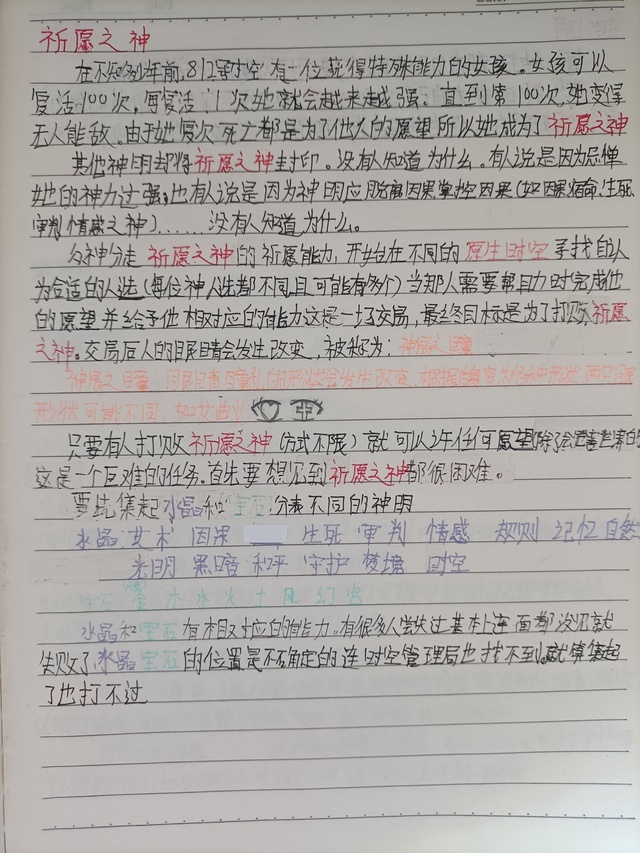 祈愿之神
在不知多少年前,812号时空有一位获得特殊能力的女孩。女孩可以
复活100次,每复活1次她就会越来越强。直到第100次,她变得
无人能敌。由于她每次死亡都是为了他人的愿望所以她成为了祈愿之神
其他神明却将祈愿之神封印。没有人知道为什么。有人说是因为忌惮
她的神力过强;也有人说是因为神明应脱离因果掌控因果(如因果宿命、生死
审判情感之神)……没有人知道为什么。
众神分走祈愿之神的祈愿能力,开始在不同的原生时空寻找自认
为合适的人选(每位神人选都不同且可能有多个)当那人需要帮助时完成他
的愿望并给予他相对应的能力这是一场交易,最终目标是为了打败祈愿
之神。交易后人的眼睛会发生改变,被称为:神愿之瞳
神愿之瞳:同眼睛瞳孔的形状会发生改变,根据 变为各种形状 两只眼
形状可能不同,如
只要有人打败祈愿之神(方式不限)就可以许任何愿望(除了
这是一个巨难的任务。首先要想见到祈愿之神都很困难。
要先集起水晶和宝石,分表不同的神明
水晶:艺术 因果 生死 审判 情感 规则 记忆 自然
光明 黑暗 和平 守护 梦境 时空
宝石: 木 水 火 土 风 幻
水晶和宝石有相对应的能力。有很多人尝失过基本上连面都没见就
失败了,水晶宝石的位置是不确定的连时空管理局也找不到。就算集起
了也打不过